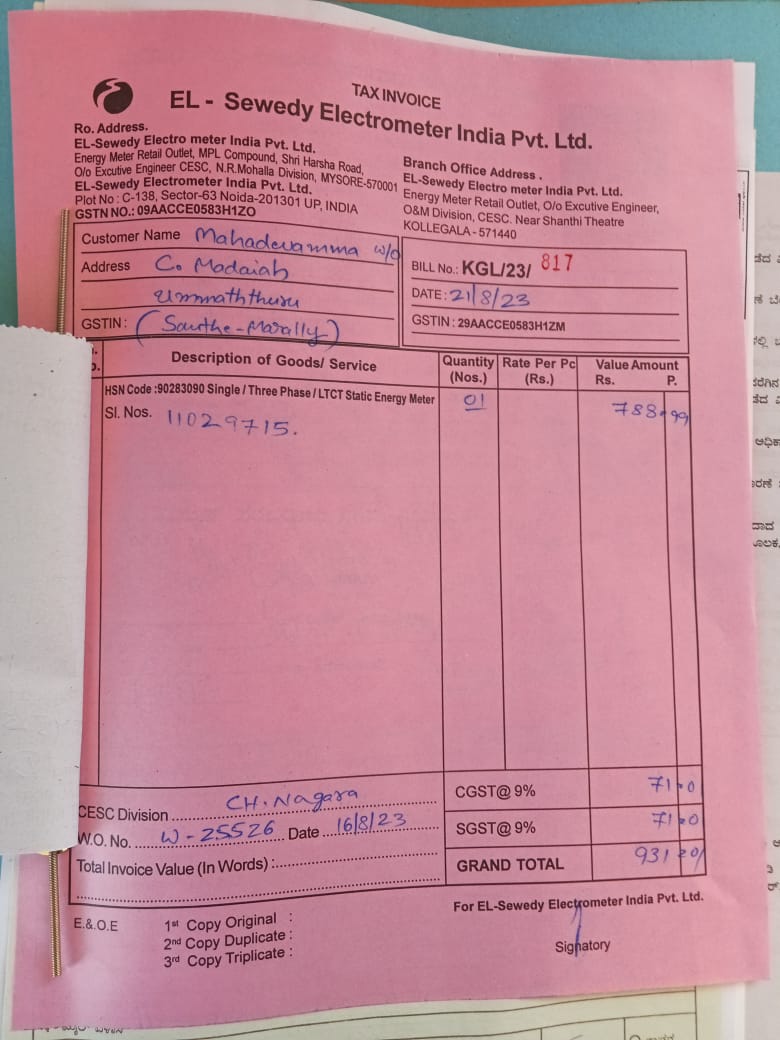 TAX INVOICE
EL - Sewedy Electrometer India Pvt. Ltd.
Ro. Address.
EL-Sewedy Electro meter India Pvt. Ltd.
Energy Meter Retail Outlet, MPL Compound, Shri Harsha Road,
O/o Excutive Engineer CESC, N.R.Mohalla Division, MYSORE-570001
EL-Sewedy Electrometer India Pvt. Ltd.
Plot No : C-138, Sector-63 Noida-201301 UP, INDIA
GSTN NO.: 09AACCE0583H1ZO
Branch Office Address .
EL-Sewedy Electro meter India Pvt. Ltd.
Energy Meter Retail Outlet, O/o Excutive Engineer,
O&M Division, CESC. Near Shanthi Theatre
KOLLEGALA - 571440
Customer Name Mahadevamma w/o
Address C. Madaiah
Ummaththuru
GSTIN : (Santhe-Marally)
BILL No.: KGL/23/ 817
DATE : 21/8/23
GSTIN : 29AACCE0583H1ZM
Description of Goods/ Service
Quantity (Nos.)
Rate Per Pc (Rs.)
Value Amount
Rs. P.
HSN Code :90283090 Single / Three Phase / LTCT Static Energy Meter
Sl. Nos. 11029715.
01
788.99
CESC Division CH. Nagara
W.O. No. W-25526 Date 16/8/23
Total Invoice Value (In Words) :
CGST@ 9%
SGST@ 9%
GRAND TOTAL
E.&.O.E
1st Copy Original :
2nd Copy Duplicate :
3rd Copy Triplicate :
For EL-Sewedy Electrometer India Pvt. Ltd.
Signatory